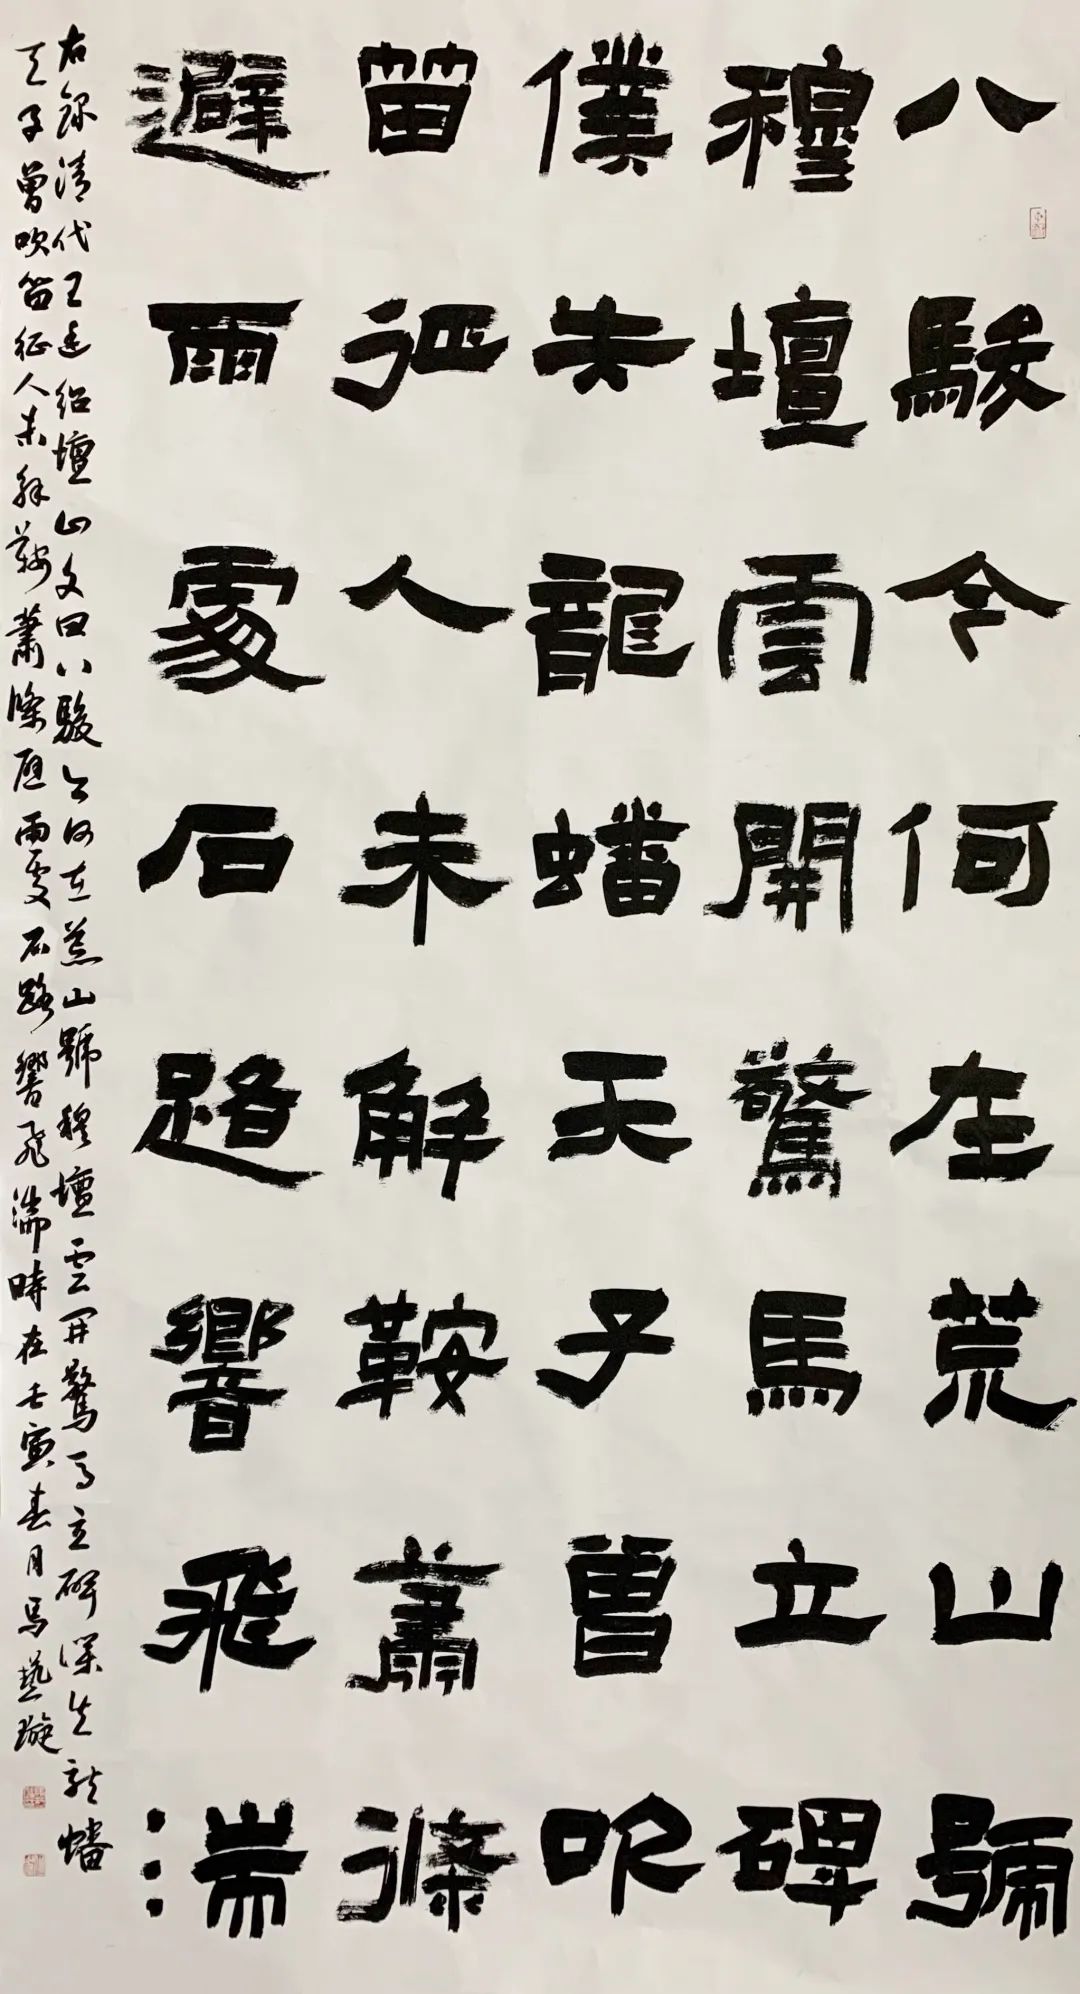 八駿今何在荒山號
穆壇雲開驚馬立碑
僕失龍蟠天子曾吹
笛征人未解鞍蕭條
避雨處石路響飛湍
右錄清代王廷紹壇山文曰八駿今何在荒山號穆壇雲開驚馬立碑深失龍蟠
天子曾吹笛征人未解鞍蕭條避雨處石路響飛湍時在壬寅春月馬藝璇